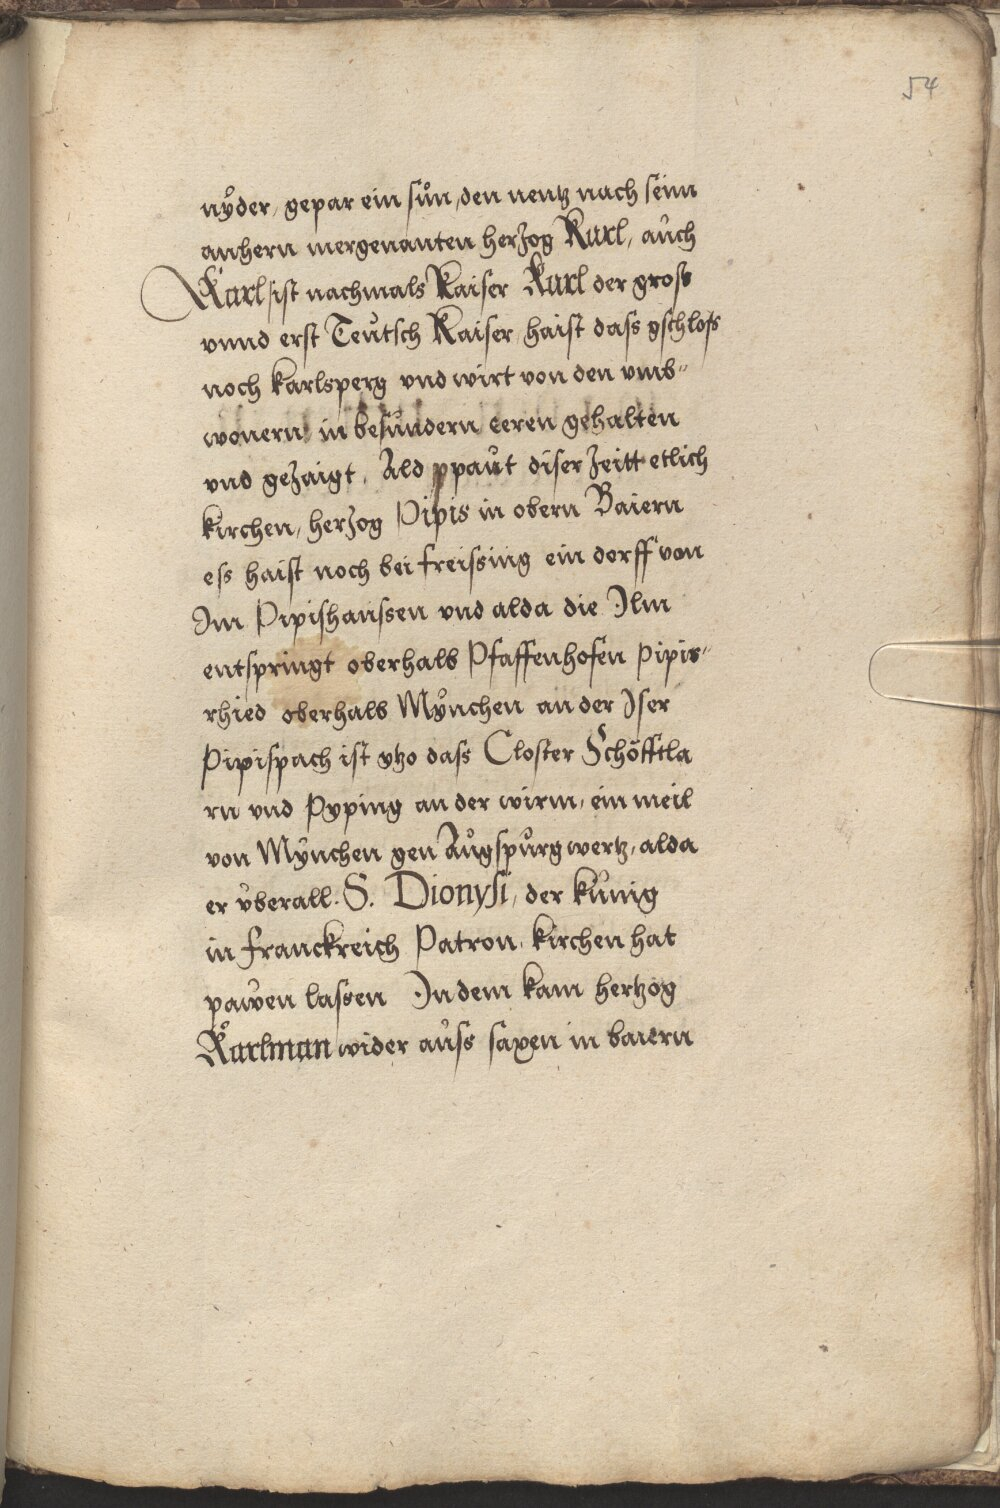 54
nÿder, gepar ein sůn, den nentz nach seim
anhern mergenanten herzog Karl, aůch
Karl ist nachmals Kaiser Karl der gross
vnnd erst Teůtsch Kaiser haist dass gschloss
noch karlsperg vnd wirt von den vmb"
wonern in besůndern eeren gehalten
vnd gezaigt. Ald ppaůt diser zeitt etlich
kirchen, herzog Pipis in obern Baiern
ess haist noch bei freissing ein dorff von
Im Pipishaussen vnd alda die Ilm
entspringt oberhalb Pfaffenhofen Pipis"
rhied oberhalb Mÿnchen an der Iser
Pipispach ist ytzo dass Closter Schöfftla
rn vnd Pyping an der wirm, ein meil
von Mÿnchen gen Aůgspůrg wertz, alda
er ůberall. S. Dionysi, der kůnig
in franckreich Patron kirchen hat
pawen lassen In dem kam hertzog
Karlman wider aůss saxen in baiern